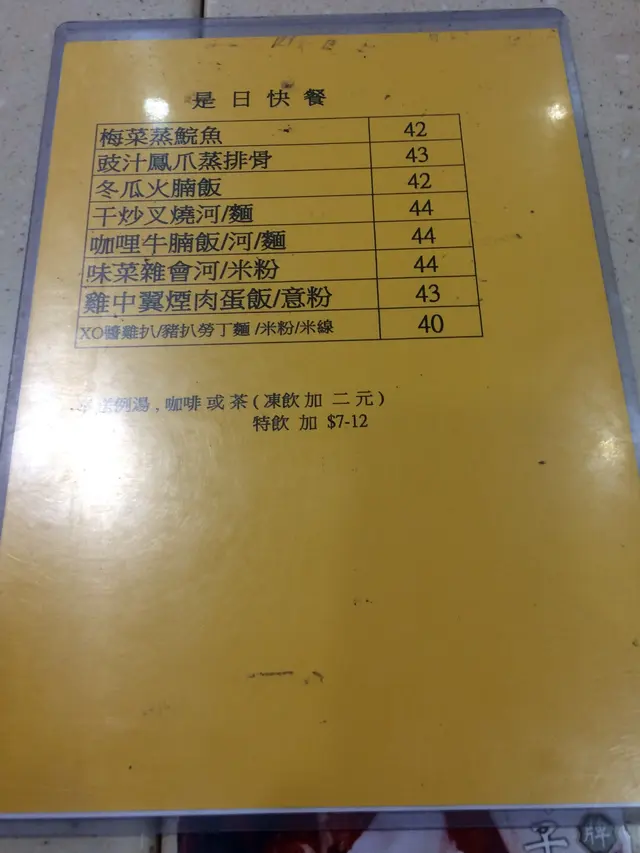 是日快餐
梅菜蒸鯇魚 42
豉汁鳳爪蒸排骨 43
冬瓜火腩飯 42
干炒叉燒河/麵 44
咖哩牛腩飯/河/麵 44
味菜雜會河/米粉 44
雞中翼煙肉蛋飯/意粉 43
XO醬雞扒/豬扒勞丁麵/米粉/米線 40
送例湯,咖啡或茶(凍飲加二元)
特飲加 $7-12
子牌